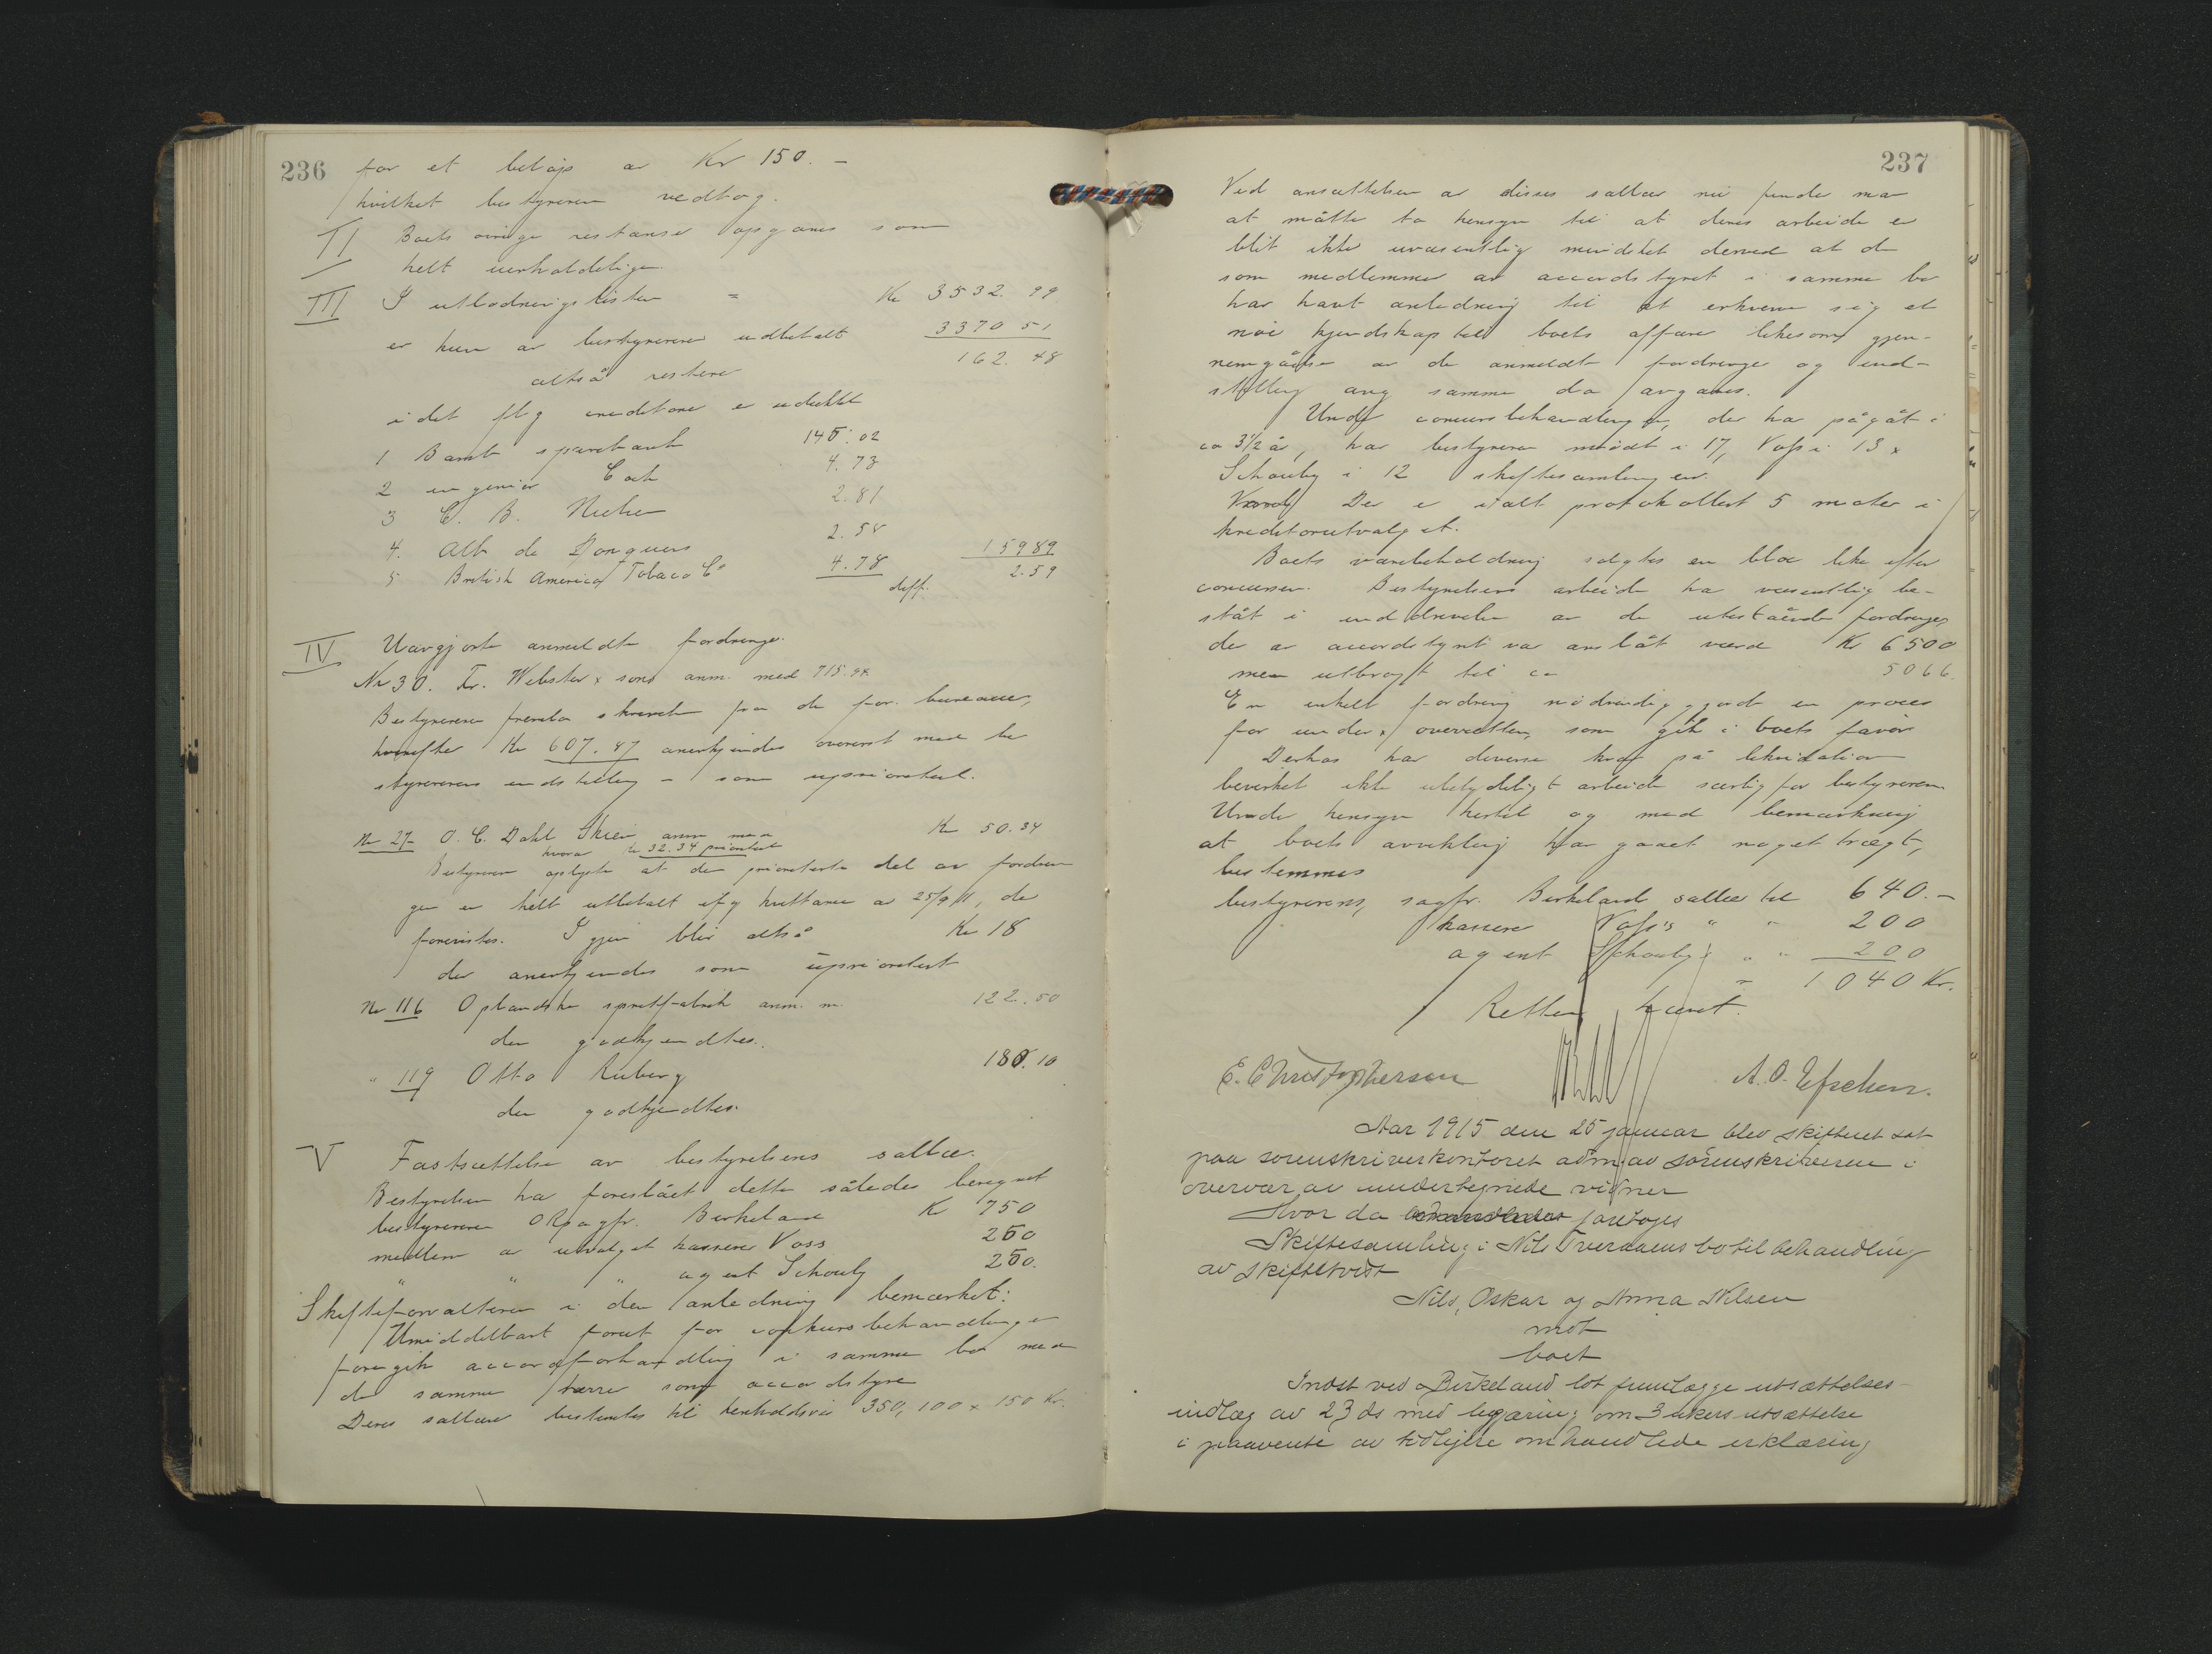 236
for et beløp av Kr 150.-
hvilket bestyreren vedtog.
II Boets øvrige restanser opgaves som
helt uerholdelige.
III I utlodningslisten = Kr 3532.99
er kun av bestyreren udbetalt 3370 51
altså restere 162.48
idet flg creditorer er
1 Bamb sparebank 145.02
2 ingeniør Coch 4.73
3 C. B. Nielsen 2.81
4. Alb de 2.55
5 British American Tobaco Co 4.78 15989
diff. 2.59
IV Uavgjorte anmeldte fordringer.
Nr 30. Fr. Webster & sons anm. med 715.94
Bestyreren fremla skrivelse fra de for. bureauer,
hvorefter Kr 607.87 anerkjendes overenst med be
styrerens indstilling - som uprioritert.
Nr 27- O. C. Dahl Skien anm med Kr 50.34
hvorav kr 32.34 prioritert
Bestyreren oplyste at den prioriterte del av fordrin
gen er helt utbetalt ifg kvittance av 25/9 11, der
forevistes. Igjen blir altså Kr 18
der anerkjendes som uprioritert
Nr 116 Oplandske spritfabrik anm. m. 122.50
der godkjendtes.
" 119 Otto Ruberg 180.10
der godkjendtes.
V Fastsættelse av bestyrelsens sallær.
Bestyrelsen har foreslået dette således beregnet
bestyreren ORsagfr. Birkeland Kr 750
medlem av utvalget kasserer Voss 250
" " " agent Schouby 250.
Skifteforvalteren i den anledning bemærket:
Umiddelbart forut for konkursbehandlingen
foregik accordforhandling i samme bo med
de samme herrer som accordstyre
Deres sallær bestemtes til henholdsvis 350, 100 & 150 Kr.
237
Ved ansættelsen av disses sallær nu finder man
at måtte ta hensyn til at deres arbeide er
blit ikke uvæsentlig mindsket derved at de
som medlemmer av accordstyret i samme bo
har havt anledning til at erhverve sig et
nøie kjendskap til boets affærer likesom gjen-
nemgåelse av de anmeldte fordringer og ind-
stilling ang samme da avgaves.
Under concursbehandlingen, der har pågåt i
ca 3 1/2 år, har bestyreren mødt i 17, Voss i 13 &
Schouby i 12 skiftesamlinger.
Der er ialt protokollert 5 møter i
kreditorutvalget.
Boets varebeholdning solgtes en bloc like efter
concursen. Bestyrelsens arbeide har væsentlig be-
ståt i inddrivelse av de utestående fordringer,
der av accordstyret var anslåt værd Kr 6500
men utbragt til ca 5066.
En enkelt fordring nødvendiggjorde en proces
for under & overretten, som gik i boets favør
Derhos har diverse krav på likvidation
bevirket ikke ubetydeligt arbeide særlig for bestyreren
Under hensyn hertil og med bemærkning
at boets avvikling har gaaet noget trægt,
bestemmes
bestyrerens, sagfr. Birkeland sallær til 640.-
kasserer Voss's " " 200
agent Schouby's " " 200
= 1040 Kr.
Retten hævet.
E. Christophersen A. O. Esschen.
Aar 1915 den 25 januar blev skifteret sat
paa sorenskriverkontoret adm. av sorenskriveren i
overvær av undertegnede vidner
Hvor da foretoges
Skiftesamling i Nils Tverdaens bo til behandling
av skiftetvist
Nils, Oskar og Anna Nilsen
mot
boet
Indst ved Birkeland lot fremlægge utsættelses-
indlæg av 23 ds med begjæring om 3 ukers utsættelse
i paavente av tidligere omhandlede erklæring